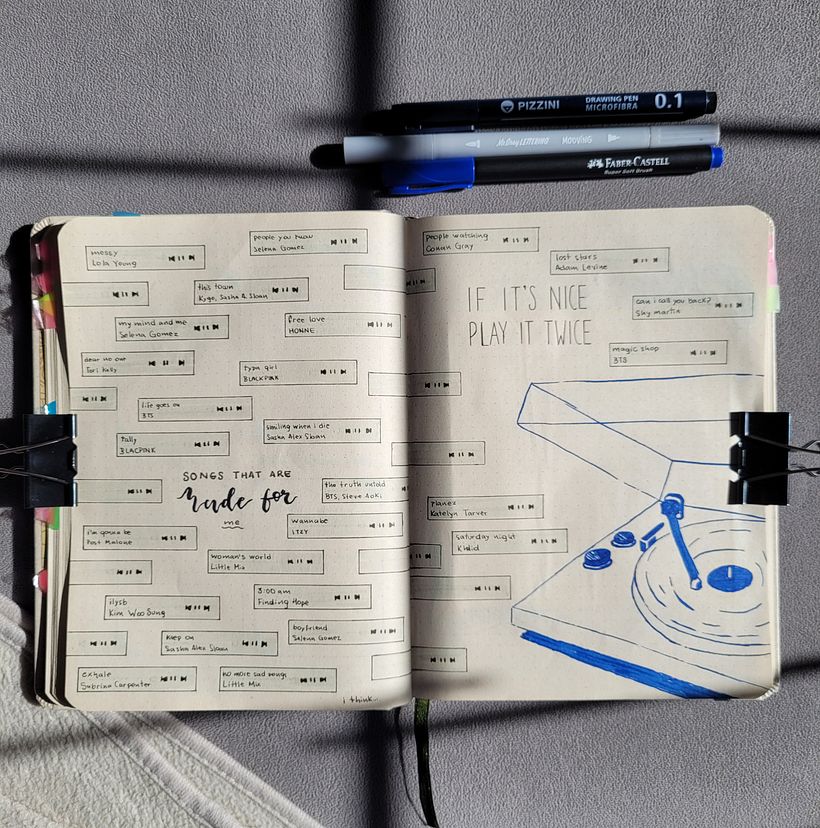 PIZZINI DRAWING PEN MICROFIBRA 0.1
MooVING
FABER-CASTELL
Super Soft Brush
people you know
Selena Gomez
messy
Lola Young
this town
Kygo, Sasha A. Sloan
my mind and me
Selena Gomez
free love
HONNE
dear no one
Tori Kelly
typa girl
BLACKPINK
life goes on
BTS
smiling when i die
Sasha Alex Sloan
tally
BLACPINK
SONGS THAT ARE
made for
me
the truth untold
BTS, Steve Aoki
i'm gonna be
Post Malone
Wannabe
ITZY
woman's world
Little Mix
ilysb
Kim Woo Sung
3:00 am
Finding Hope
keep on
Sasha Alex Sloan
boyfriend
Selena Gomez
exhale
Sabrina Carpenter
no more sad songs
Little Mix
i think...
people watching
Conan Gray
lost stars
Adam Levine
IF IT'S NICE
PLAY IT TWICE
can i call you back?
Shy martin
magic shop
BTS
planez
Katelyn Tarver
saturday night
Khalid